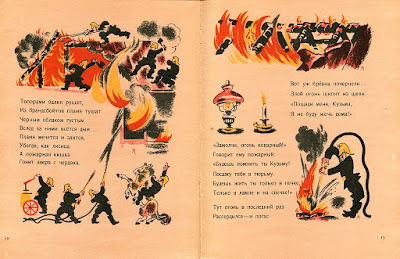 Топорами балки рушат,
Из брандсбойтов пламя тушат.
Чёрным облаком густым
Вслед за ними вьётся дым.
Пламя мечется и злится,
Убегая, как лисица.
А пожарная кишка
Гонит зверя с чердака.
Вот уж брёвна почернели...
Злой огонь шипит из щели:
«Пощади меня, Кузьма,
Я не буду жечь дома!»
«Замолчи, огонь коварный!»
Говорит ему пожарный:
«Будешь помнить ты Кузьму!
Посажу тебя в тюрьму.
Будешь жить ты только в печке,
Только в лампе и на свечке!»
Тут огонь в последний раз
Рассердился—и погас.